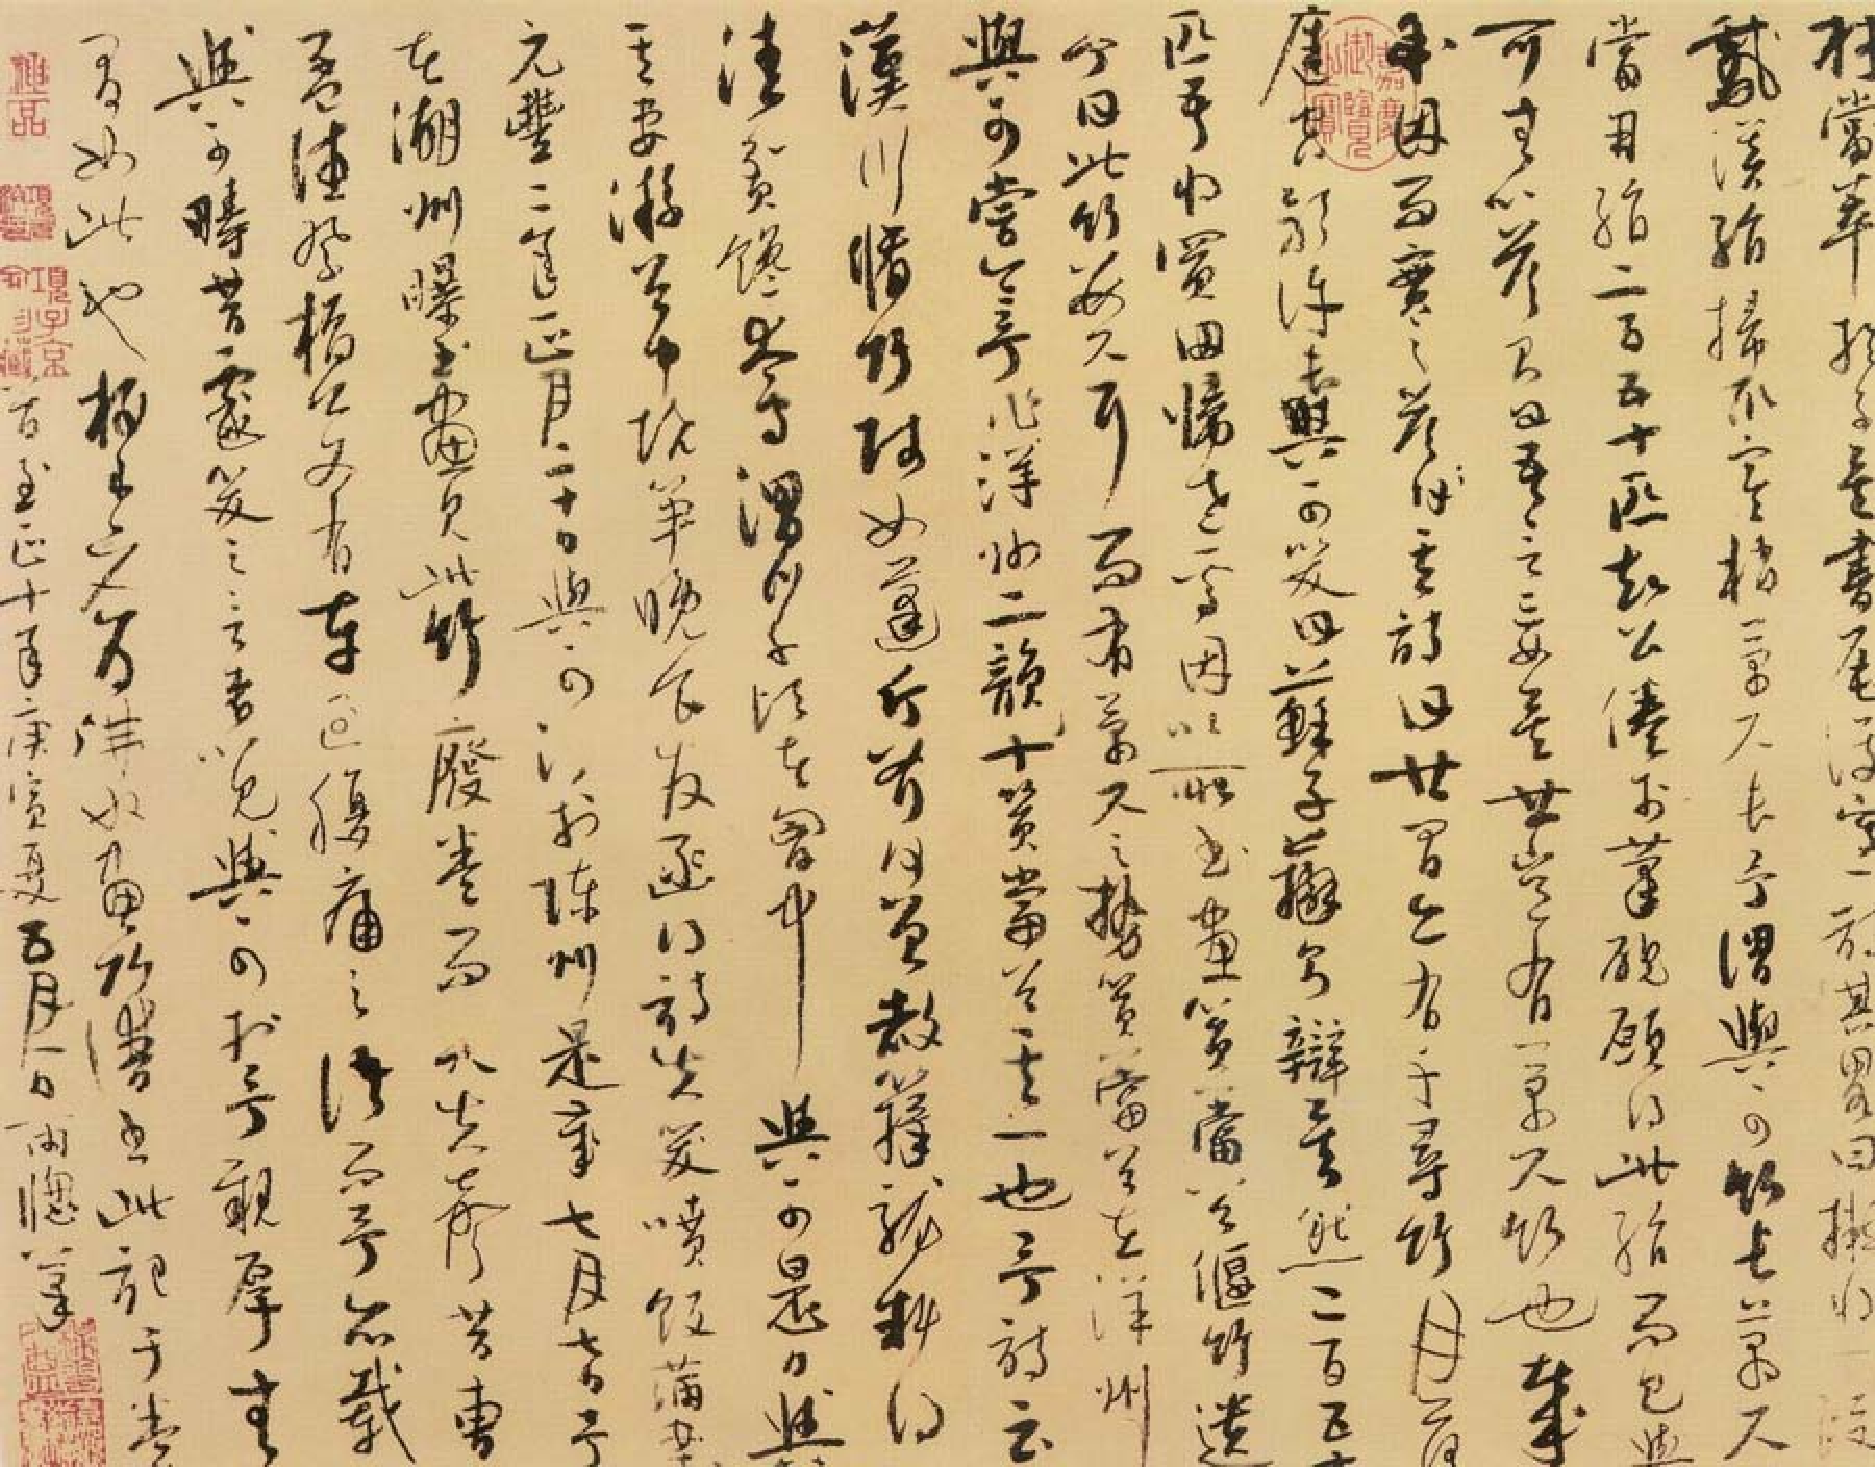 材當萃於子矣書尾復寫一詩其畧曰擬將一段
鵝溪絹掃取寒梢萬尺長予謂與可竹長萬尺
當用絹二百五十匹知公倦於筆硯願得此絹而已與
可無以答則曰吾言妄矣世豈有萬尺竹也哉
余因而實之答其詩曰世間亦有千尋竹月落
庭空影許長與可笑曰蘇子辯則辯矣然二百五十
匹吾將買田歸老焉因以所書畫篔簹谷偃竹遺
余曰此竹數尺耳而有萬尺之勢篔簹谷在洋州
與可嘗令予作洋州二韻十篔簹谷其一也予詩云
漢川脩竹賤如蓬斤斧何曾赦籜龍料得
清貧饞太守渭川千畝在胷中 與可是日與
其妻游谷中燒筍晚食發函得詩失笑噴飯滿案
元豐二年正月二十日與可沒於陳州是歲七月七日予
在湖州曝書畫見此竹廢卷而哭失聲昔曹
孟德祭橋公文有車過腹痛之語而予亦載
與可疇昔戲笑之言者以見與可於予親厚無
間如此也 梅道人爲佛奴畫竹譜書此記于卷
首至正十年庚寅夏五月一日雨牕筆
嘉慶御覽之寶
神品
項子京家珍藏